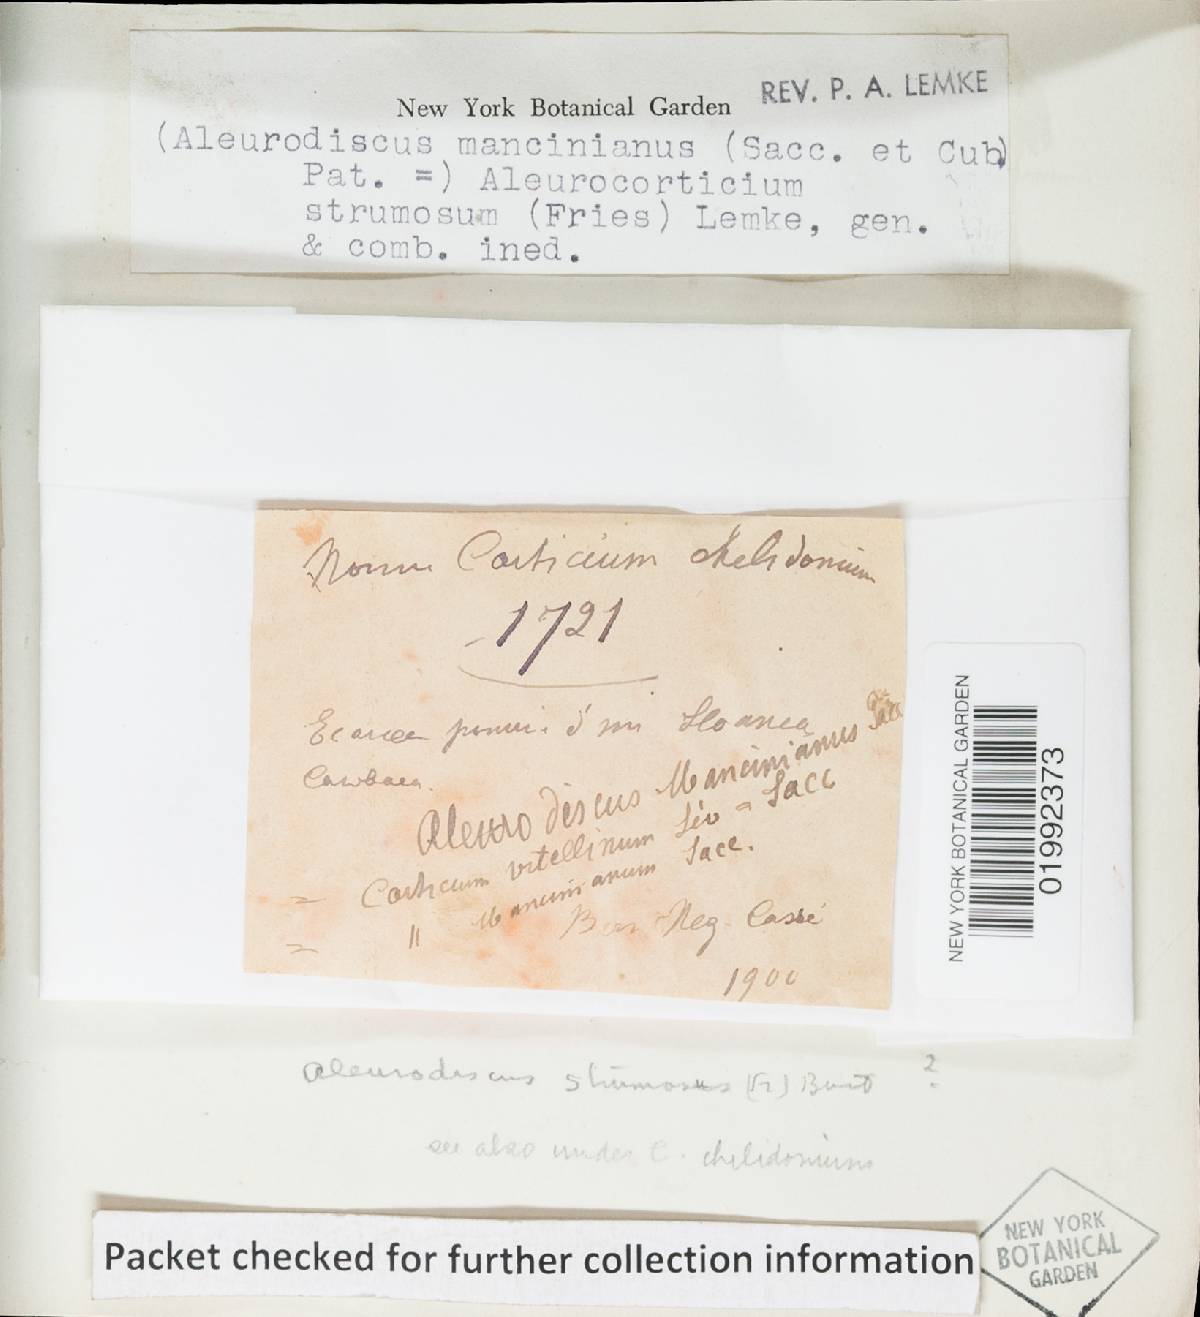 New York Botanical Garden
REV. P. A. LEMKE
(Aleurodiscus mancinianus (Sacc. et Cub)
Pat. =) Aleurocorticium
strumosum (Fries) Lemke, gen.
& comb. ined.
Corticium chelidonium
1721
Sloanea
Aleurodiscus Mancinianus Sacc
= Corticium vitellinum Lév = Sacc
= " Mancinianum Sacc.
1900
NEW YORK BOTANICAL GARDEN
01992373
Aleurodiscus strumosus (Fr) Burt ?
see also under C. chelidonium
Packet checked for further collection information
NEW YORK
BOTANICAL
GARDEN